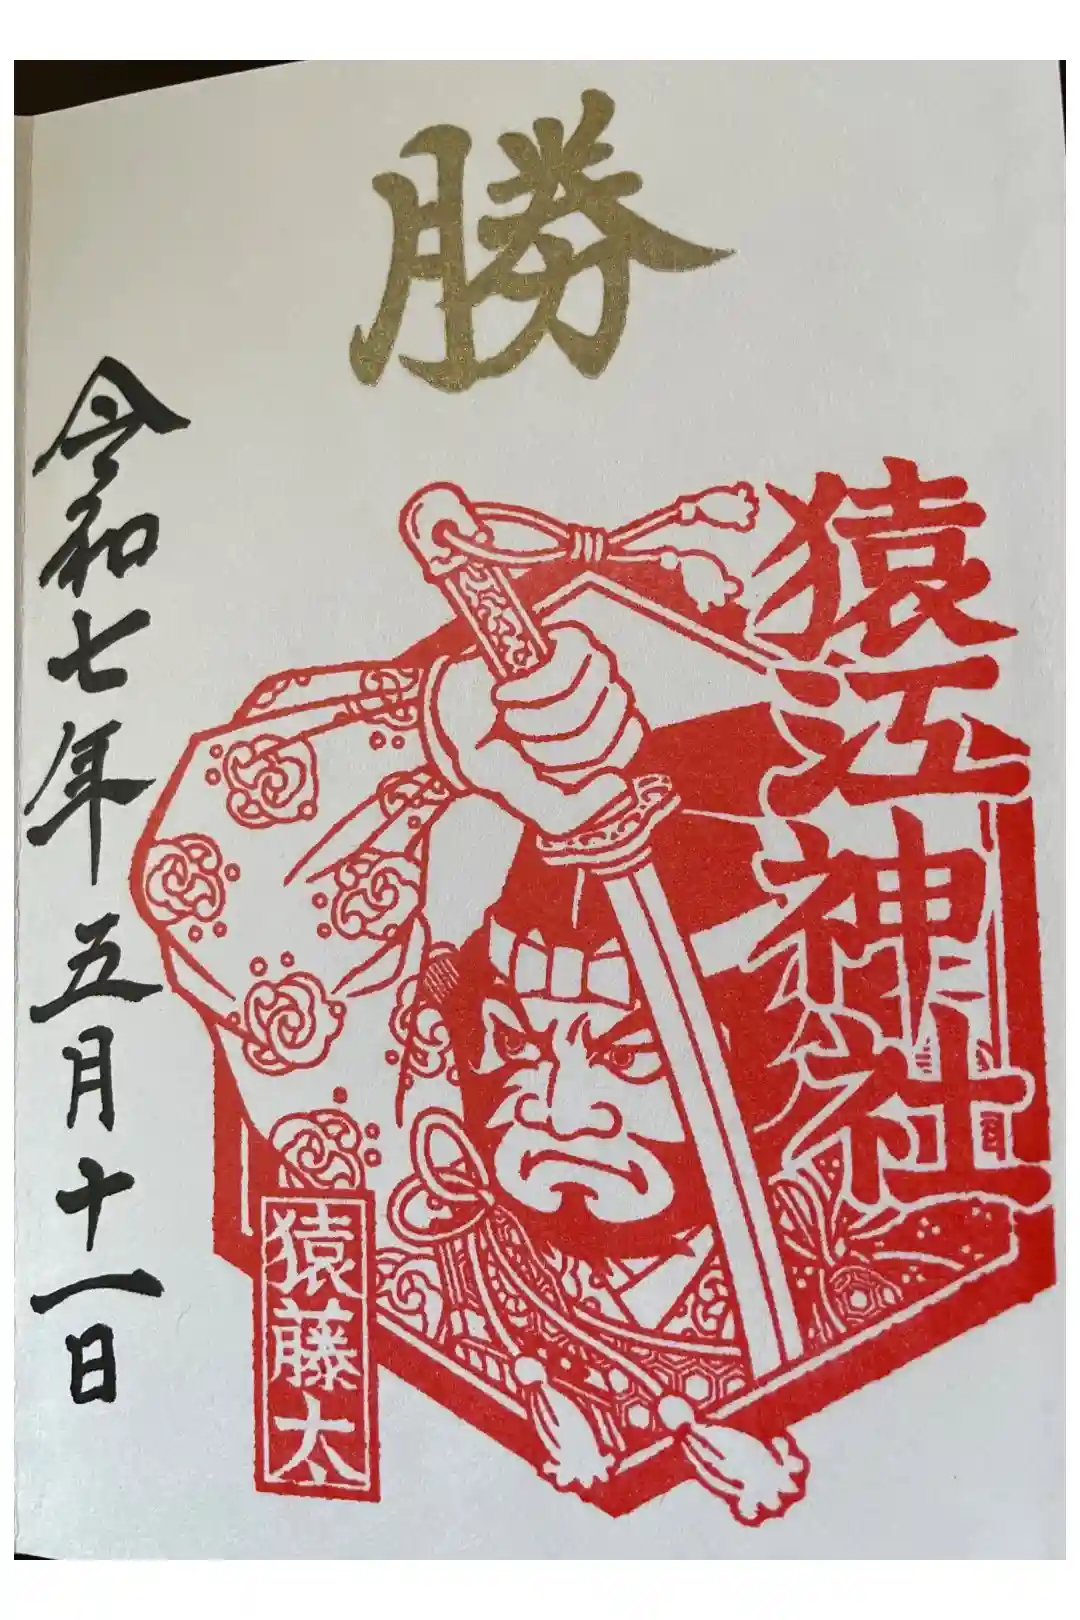 勝
猿江神社
猿藤太
令和七年五月十一日